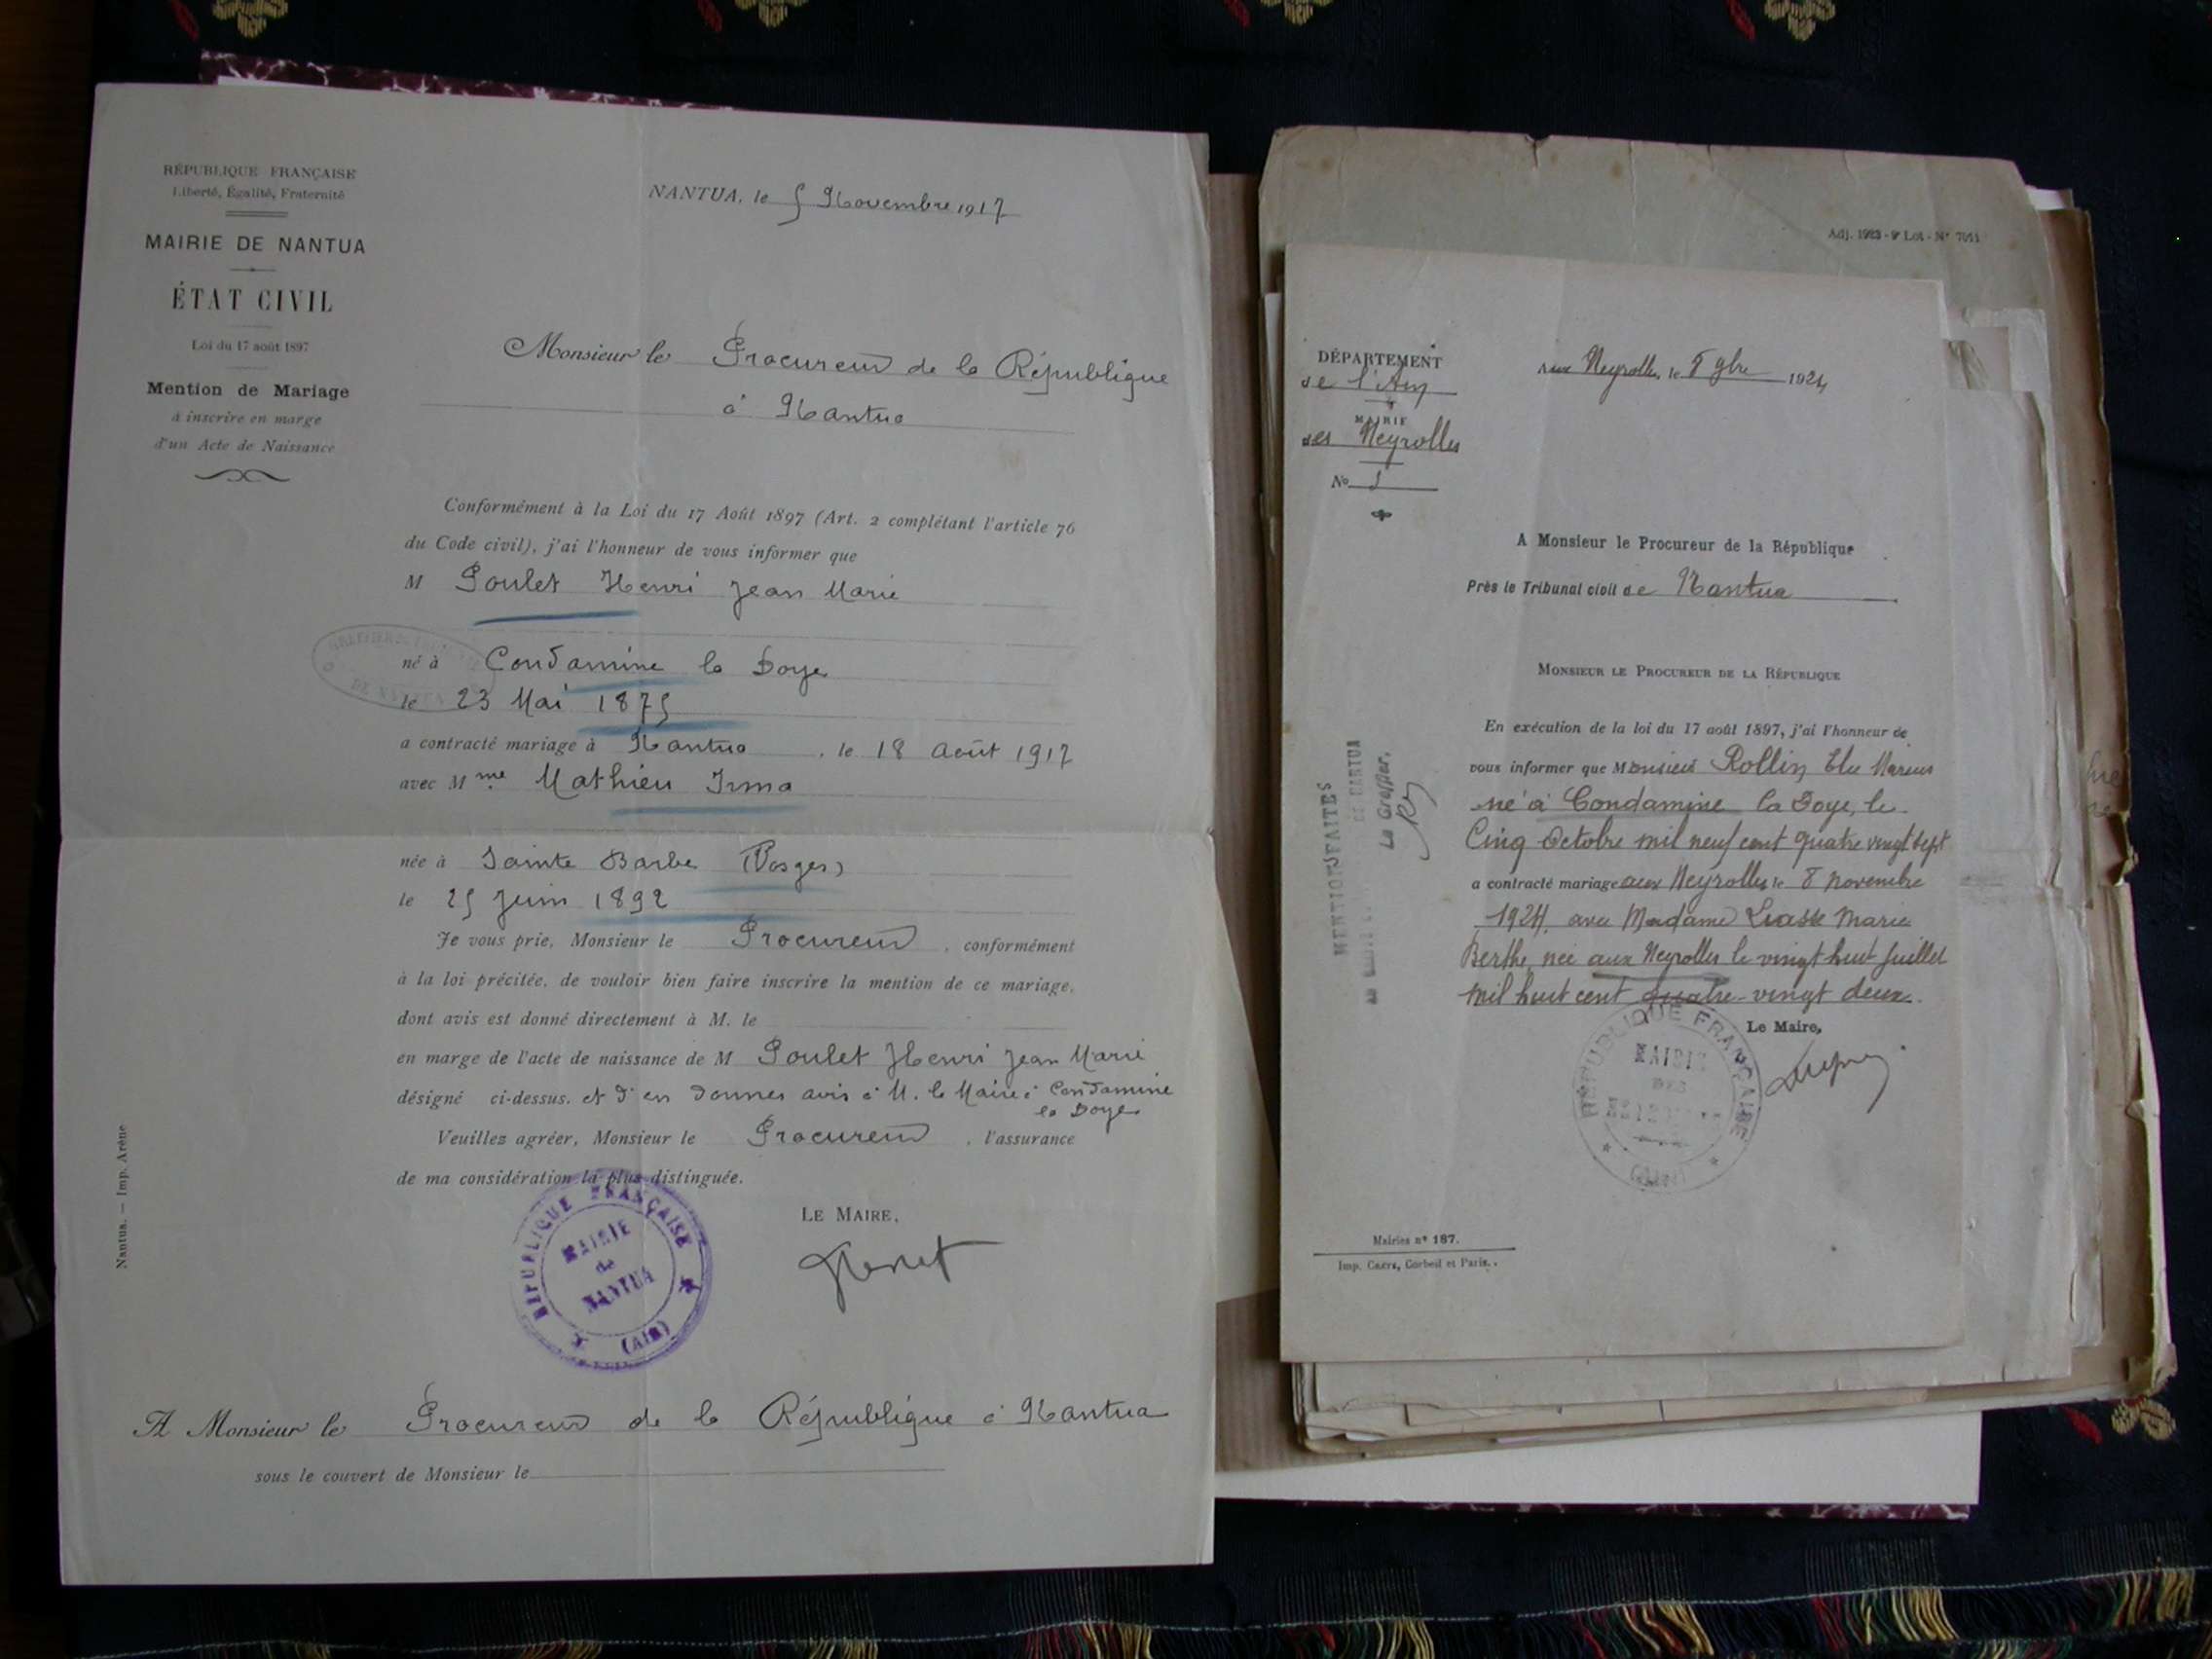 RÉPUBLIQUE FRANÇAISE
Liberté, Égalité, Fraternité
MAIRIE DE NANTUA
ÉTAT CIVIL
Loi du 17 août 1897
Mention de Mariage
à inscrire en marge
d'un Acte de Naissance
NANTUA, le 5 Novembre 1917
Monsieur le Procureur de la République
à Nantua
Conformément à la Loi du 17 Août 1897 (Art. 2 complétant l'article 76
du Code civil), j'ai l'honneur de vous informer que
M Poulet Henri Jean Marie
né à Condamine la Doye
le 23 Mai 1875
a contracté mariage à Nantua, le 18 août 1917
avec Mme Mathieu Irma
née à Sainte Barbe (Vosges)
le 25 Juin 1892
Je vous prie, Monsieur le Procureur, conformément
à la loi précitée, de vouloir bien faire inscrire la mention de ce mariage,
dont avis est donné directement à M. le
en marge de l'acte de naissance de M Poulet Henri Jean Marie
désigné ci-dessus. et d'en donner avis à M. le Maire à Condamine
la Doye
Veuillez agréer, Monsieur le Procureur, l'assurance
de ma considération la plus distinguée.
LE MAIRE,
RÉPUBLIQUE FRANÇAISE
MAIRIE
de
NANTUA
(AIN)
A Monsieur le Procureur de la République à Nantua
sous le couvert de Monsieur le
Nantua. — Imp. Arène
Adj. 1923 - 9e Lot - N° 7011
DÉPARTEMENT
de l'Ain
MAIRIE
des Neyrolles
No 1
Aux Neyrolles, le 8 9bre 1924
A Monsieur le Procureur de la République
Près le Tribunal civil de Nantua
MONSIEUR LE PROCUREUR DE LA RÉPUBLIQUE
En exécution de la loi du 17 août 1897, j'ai l'honneur de
vous informer que Monsieur Rollin Elie Marius
né à Condamine la Doye, le
Cinq Octobre mil neuf cent quatre vingt sept
a contracté mariage aux Neyrolles le 8 novembre
1924, avec Madame Marie
Berthe, née aux Neyrolles le vingt huit Juillet
mil huit cent quatre-vingt deux.
Le Maire,
RÉPUBLIQUE FRANÇAISE
MAIRIE
DES
(AIN)
MENTIONS FAITES
DE NANTUA
Le Greffier,
Mairies n° 187.
Imp. Caère, Corbeil et Paris.